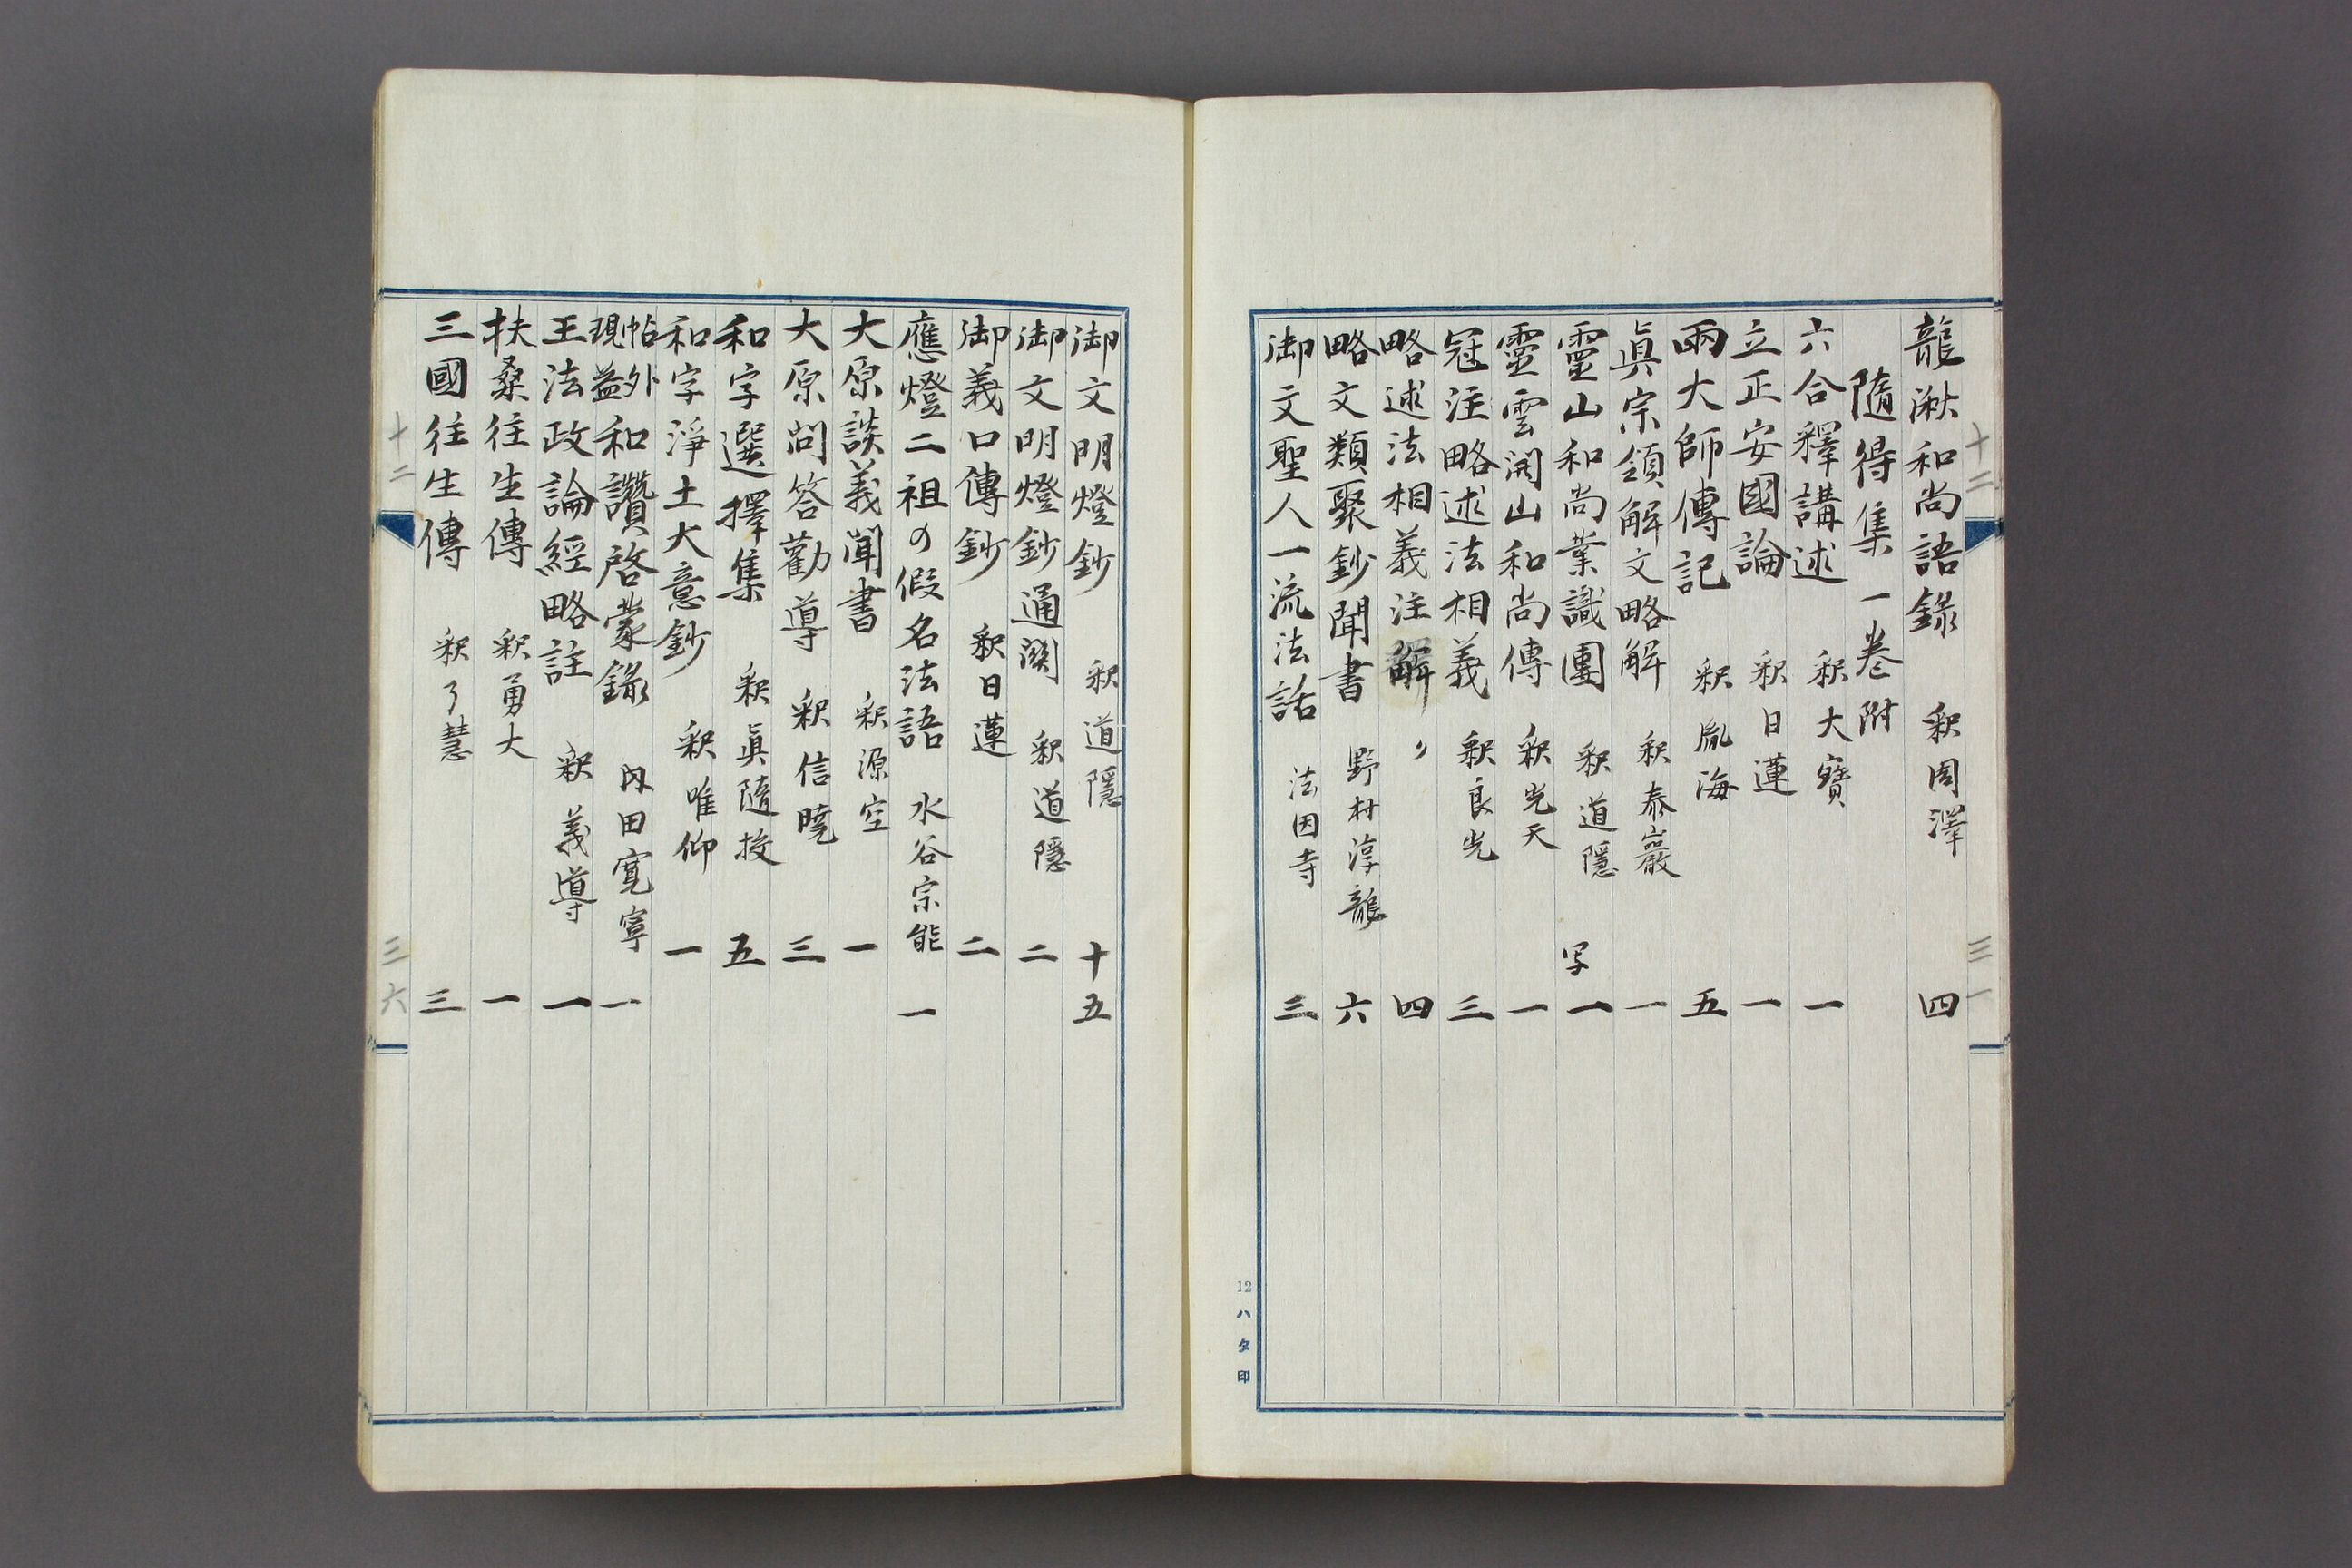 十二
三一
龍湫和尚語錄 釈周澤 四
隨得集一卷附
六合釋講述 釈大寶 一
立正安國論 釈日蓮 一
兩大師傳記 釈胤海 五
眞宗領解文略解 釈泰巖 一
靈山和尚業識團 釈道隱 写 一
靈雲開山和尚傳 釈光天 一
冠注略述法相義 釈良光 三
略述法相義注解 〃 四
略文類聚鈔聞書 野村淳龍 六
御文聖人一流法話 法因寺 三
12 ハタ印
御文明燈鈔 釈道隱 十五
御文明燈鈔通関 釈道隱 二
御義口傳鈔 釈日蓮 二
應燈二祖の假名法語 水谷宗能 一
大原談義聞書 釈源空 一
大原問答勸導 釈信暁 三
和字選擇集 釈眞隨 五
和字淨土大意鈔 釈唯仰 一
帖外
現益和讚啓蒙錄 内田寛寧 一
王法政論經略註 釈義導 一
扶桑往生傳 釈勇大 一
三國往生傳 釈了慧 三
十二
三六